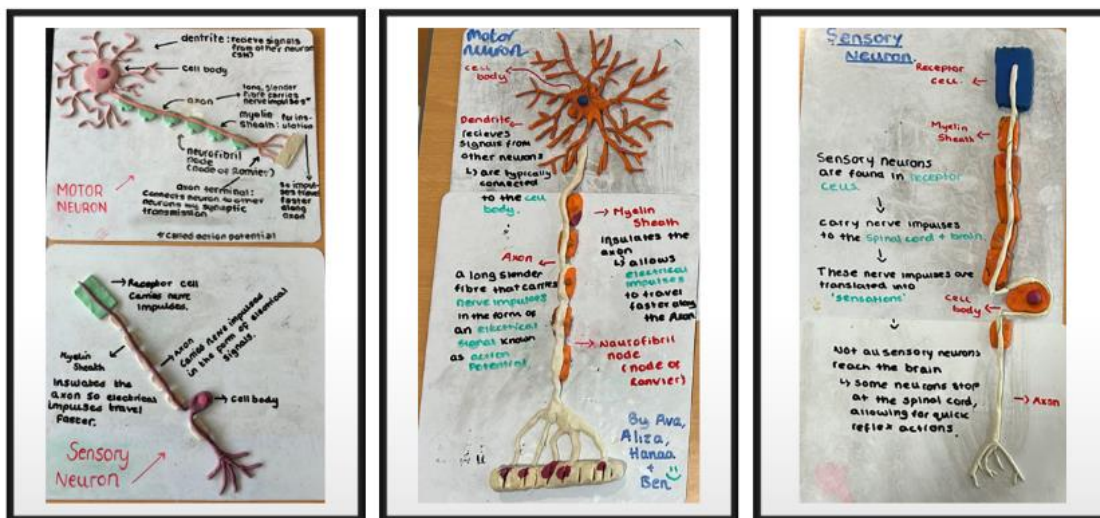 dentrite: recieve signals
from other neuron
cell body
axon
long, slender
fibre carries
nerve impulses*
myelin
sheath:
for ins-
ulation
neurofibril
node
(node of Ranvier)
so impul-
ses travel
faster
along
axon
MOTOR
NEURON
axon terminal:
connects neuron to other
neurons
synaptic
transmission
*called action potential
Receptor cell
Carries nerve
impulses.
Axon
Carries nerve impulses
in the form of electrical
signals.
Myelin
Sheath
Insulates the
axon so electrical
impulses travel
faster.
Cell body
Sensory
Neuron
Motor
neuron
cell
body
Dendrite
recieves
signals from
other neurons
↳ are typically
connected
to the cell
body.
Myelin
Sheath
Insulates the
axon
↳ allows
electrical
impulses
to travel
faster along
the Axon.
Axon
a long slender
fibre that carries
nerve impulses
in the form of
an electrical
signal known
as action
Potential
Neurofibril
node
(node of
Ranvier)
By Ava,
Aliza,
Hanaa
+
Ben
Sensory
Neuron.
Receptor
cell.
Myelin
Sheath
Sensory neurons
are found in receptor
cells.
Carry nerve impulses
to the spinal cord + brain.
These nerve impulses are
translated into
'sensations'
cell
body
Not all sensory neurons
reach the brain
↳ some neurons stop
at the spinal cord,
allowing for quick
reflex actions.
Axon